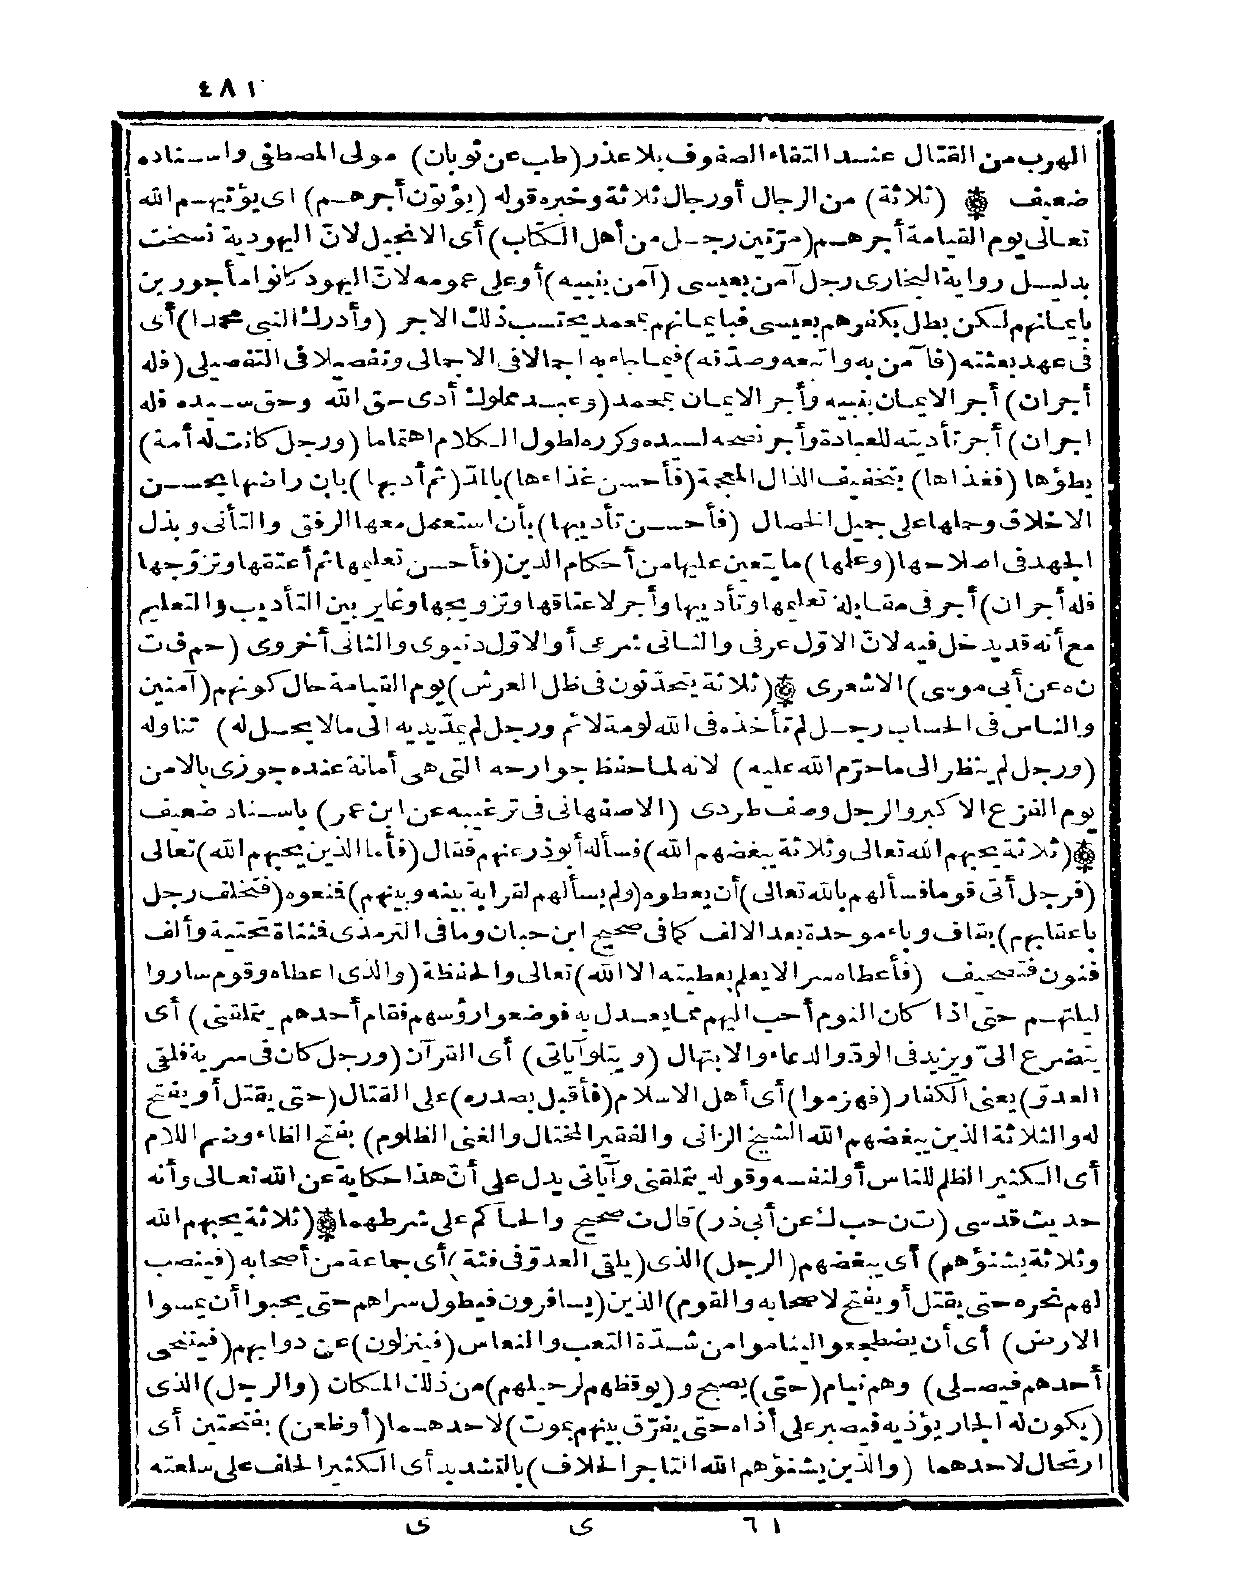 ٤٨١
الهرب من القتال عند التقاء الصفوف بلا عذر (طب عن ثوبان) مولى المصطفى واسناده
ضعيف ۞ (ثلاثة) من الرجال أو رجال ثلاثة وخبره قوله (يؤتون أجرهم) اى يؤتيهم الله
تعالى يوم القيامة أجرهم (مرّتين رجل من أهل الكتاب) أى الانجيل لانّ اليهودية نسخت
بدليل رواية البخارى رجل آمن بعيسى (آمن بنبيه) أو على عمومه لانّ اليهود كانوا مأجورين
بايمانهم لكن بطل بكفرهم بعيسى فبايمانهم بمحمد يحتسب ذلك الاجر (وأدرك النبى محمدا) أى
فى عهد بعثته (فآمن به واتبعه وصدّقه) فيما جاء به اجمالا فى الاجمالى وتفصيلا فى التفصيلى (فله
أجران) أجر الايمان بنبيه وأجر الايمان بمحمد (وعبد مملوك أدى حق الله وحق سيده فله
اجران) أجر تأديته للعبادة وأجر نصحه لسيده وكرره لطول الكلام اهتماما (ورجل كانت له أمة)
يطؤها (فغذاها) بتخفيف الذال المعجمة (فأحسن غذاءها) بالمدّ (ثم أدبها) بان راضها بحسن
الاخلاق وحملها على جميل الخصال (فأحسن تأديبها) بأن استعمل معها الرفق والتأنى وبذل
الجهد فى اصلاحها (وعلمها) ما يتعين عليها من أحكام الدين (فأحسن تعليمها ثم أعتقها وتزوّجها
فله أجران) أجر فى مقابلة تعليمها وتأديبها وأجر لاعتاقها وتزويجها وغاير بين التأديب والتعليم
مع أنه قد يدخل فيه لانّ الاوّل عرفى والثانى شرعى أو الاوّل دنيوى والثانى أخروى (حم ق ت
ن ه عن أبى موسى) الاشعرى ۞ (ثلاثة يتحدّثون فى ظل العرش) يوم القيامة حال كونهم (آمنين
والناس فى الحساب رجل لم تأخذه فى الله لومة لائم ورجل لم يمدّ يديه الى مالا يحل له) تناوله
(ورجل لم ينظر الى ما حرّم الله عليه) لانه لما حفظ جوارحه التى هى أمانة عنده جوزى بالامن
يوم الفزع الاكبر والرجل وصف طردى (الاصفهانى فى ترغيبه عن ابن عمر) باسناد ضعيف
۞ (ثلاثة يحبهم الله تعالى وثلاثة يبغضهم الله) فسأله أبو ذر عنهم فقال (فأما الذين يحبهم الله) تعالى
(فرجل أتى قوما فسألهم بالله تعالى) أن يعطوه (ولم يسألهم لقرابة بينه وبينهم) فمنعوه (فتخلف رجل
باعقابهم) بقاف وباء موحدة بعد الالف كما فى صحيح ابن حبان وما فى الترمذى فمثناة تحتية وألف
فنون فتصحيف (فأعطاه سرا لا يعلم بعطيته الا الله) تعالى والحفظة (والذى اعطاه وقوم ساروا
ليلتهم حتى اذا كان النوم أحب اليهم مما يعدل به فوضعوا رؤسهم فقام أحدهم يتملقنى) أى
يتضرع الىّ ويزيد فى الودّ والدعاء والابتهال (ويتلو آياتى) أى القرآن (ورجل كان فى سرية فلقى
العدوّ) يعنى الكفار (فهزموا) أى أهل الاسلام (فأقبل بصدره) على القتال (حتى يقتل أو يفتح
له والثلاثة الذين يبغضهم الله الشيخ الزانى والفقير المختال والغنى الظلوم) بفتح الظاء وضم اللام
أى الكثير الظلم للناس أو لنفسه وقوله يتملقنى وآياتى يدل على أنّ هذا حكاية عن الله تعالى وأنه
حديث قدسى (ت ن حب ك عن أبى ذر) قال ت صحيح والحاكم على شرطهما ۞ (ثلاثة يحبهم الله
وثلاثة يشنؤهم) أى يبغضهم (الرجل) الذى (يلقى العدوّ فى فئة) أى جماعة من أصحابه (فينصب
لهم نحره حتى يقتل أو يفتح لاصحابه والقوم) الذين (يسافرون فيطول سراهم حتى يحبوا أن يمسوا
الارض) أى أن يضطجعوا ليناموا من شدّة التعب والنعاس (فينزلون) عن دوابهم (فيتنحى
أحدهم فيصلى) وهم نيام (حتى) يصبح و (يوقظهم لرحيلهم) من ذلك المكان (والرجل) الذى
(يكون له الجار يؤذيه فيصبر على أذاه حتى يفرّق بينهم بموت) لاحدهما (أو ظعن) بفتحتين أى
ارتحال لاحدهما (والذين يشنؤهم الله التاجر الحلاف) بالتشديد أى الكثير الحلف على سلعته
٦١ ى ى